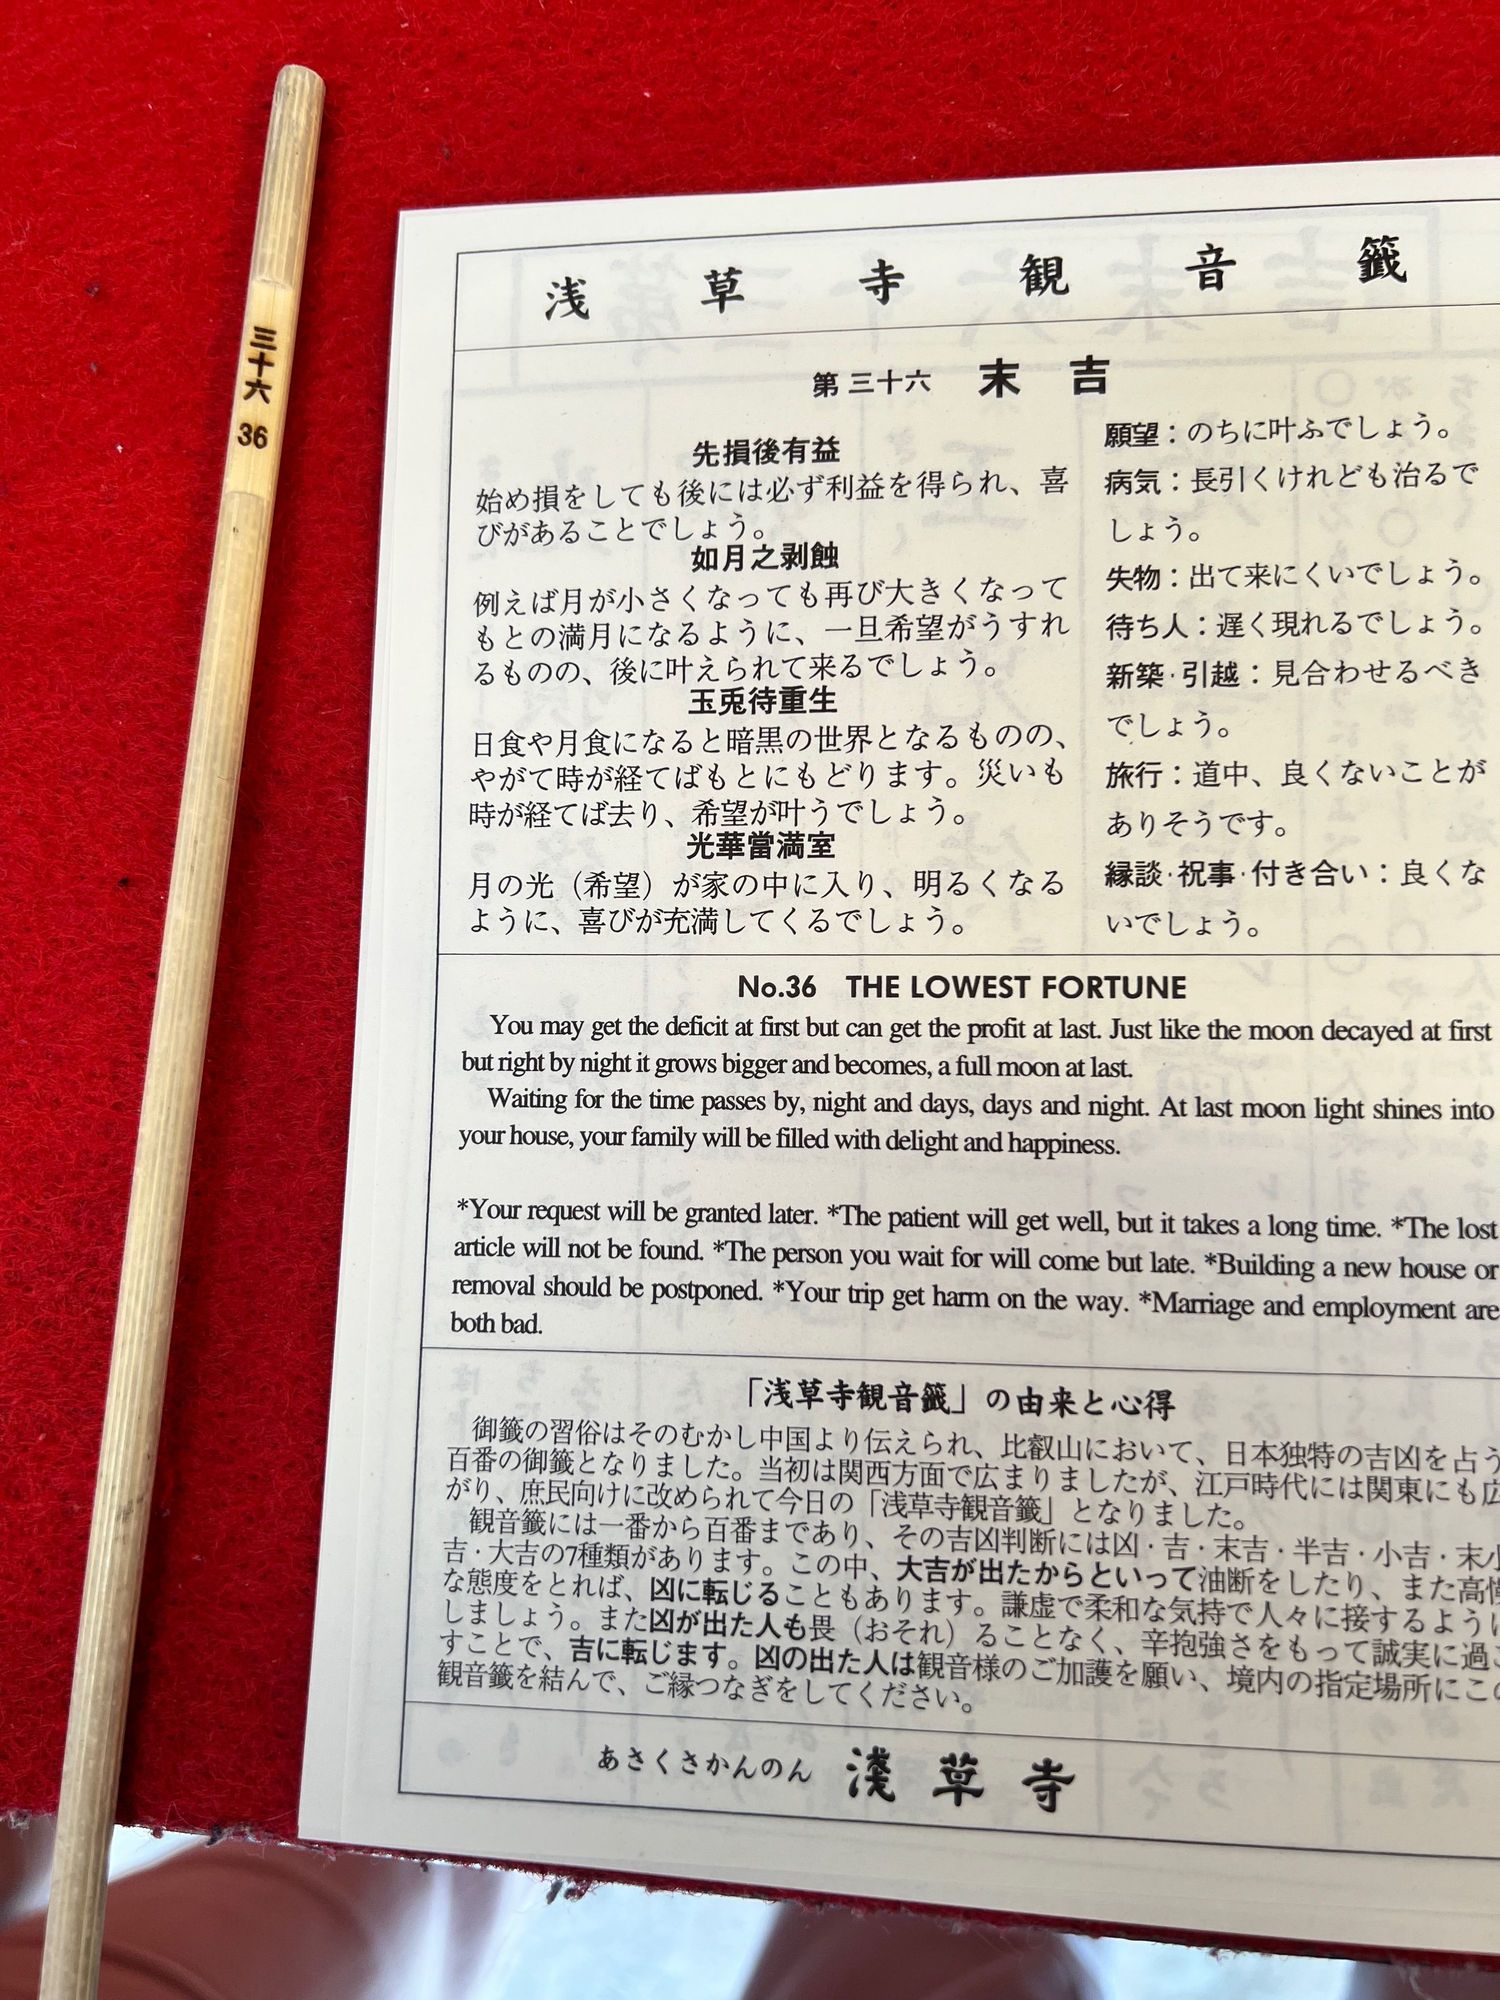 三十六
36
浅草寺観音籤
第三十六 末吉
先損後有益
始め損をしても後には必ず利益を得られ、喜
びがあることでしょう。
如月之剥蝕
例えば月が小さくなっても再び大きくなって
もとの満月になるように、一旦希望がうすれ
るものの、後に叶えられて来るでしょう。
玉兎待重生
日食や月食になると暗黒の世界となるものの、
やがて時が経てばもとにもどります。災いも
時が経てば去り、希望が叶うでしょう。
光華當満室
月の光（希望）が家の中に入り、明るくなる
ように、喜びが充満してくるでしょう。
願望：のちに叶ふでしょう。
病気：長引くけれども治るで
しょう。
失物：出て来にくいでしょう。
待ち人：遅く現れるでしょう。
新築·引越：見合わせるべき
でしょう。
旅行：道中、良くないことが
ありそうです。
縁談·祝事·付き合い：良くな
いでしょう。
No.36 THE LOWEST FORTUNE
You may get the deficit at first but can get the profit at last. Just like the moon decayed at first
but right by night it grows bigger and becomes, a full moon at last.
Waiting for the time passes by, night and days, days and night. At last moon light shines into
your house, your family will be filled with delight and happiness.
*Your request will be granted later. *The patient will get well, but it takes a long time. *The lost
article will not be found. *The person you wait for will come but late. *Building a new house or
removal should be postponed. *Your trip get harm on the way. *Marriage and employment are
both bad.
「浅草寺観音籤」の由来と心得
御籤の習俗はそのむかし中国より伝えられ、比叡山において、日本独特の吉凶を占う
百番の御籤となりました。当初は関西方面で広まりましたが、江戸時代には関東にも広
がり、庶民向けに改められて今日の「浅草寺観音籤」となりました。
観音籤には一番から百番まであり、その吉凶判断には凶·吉·末吉·半吉·小吉·末小
吉·大吉の7種類があります。この中、大吉が出たからといって油断をしたり、また高慢
な態度をとれば、凶に転じることもあります。謙虚で柔和な気持で人々に接するように
しましょう。また凶が出た人も畏（おそれ）ることなく、辛抱強さをもって誠実に過ご
すことで、吉に転じます。凶の出た人は観音様のご加護を願い、境内の指定場所にこの
観音籤を結んで、ご縁つなぎをしてください。
あさくさかんのん 淺草寺